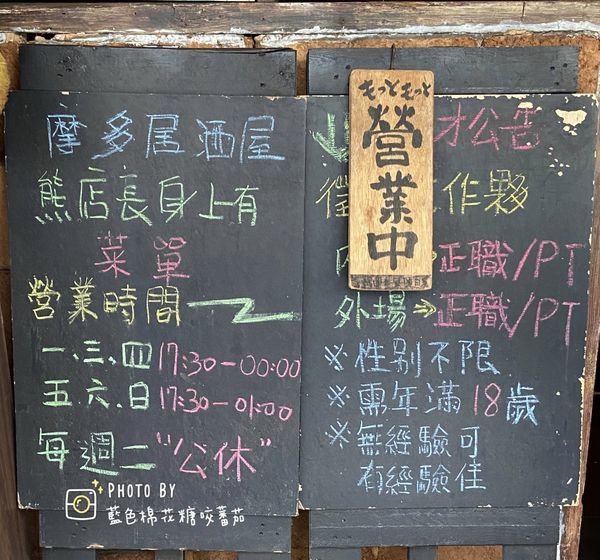 摩多居酒屋
熊店長身上有
菜單
營業時間
一、三、四 17:30－00:00
五、六、日 17:30－01:00
每週二"公休"
PHOTO BY
藍色棉花糖咬蕃茄
もっともっと
營業中
才公告
作夥
正職/PT
外場⇒正職/PT
※性別不限
※需年滿18歲
※無經驗可
有經驗佳